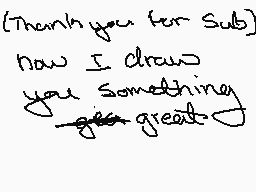 (Thank you for Sub)
now I draw
you something
great